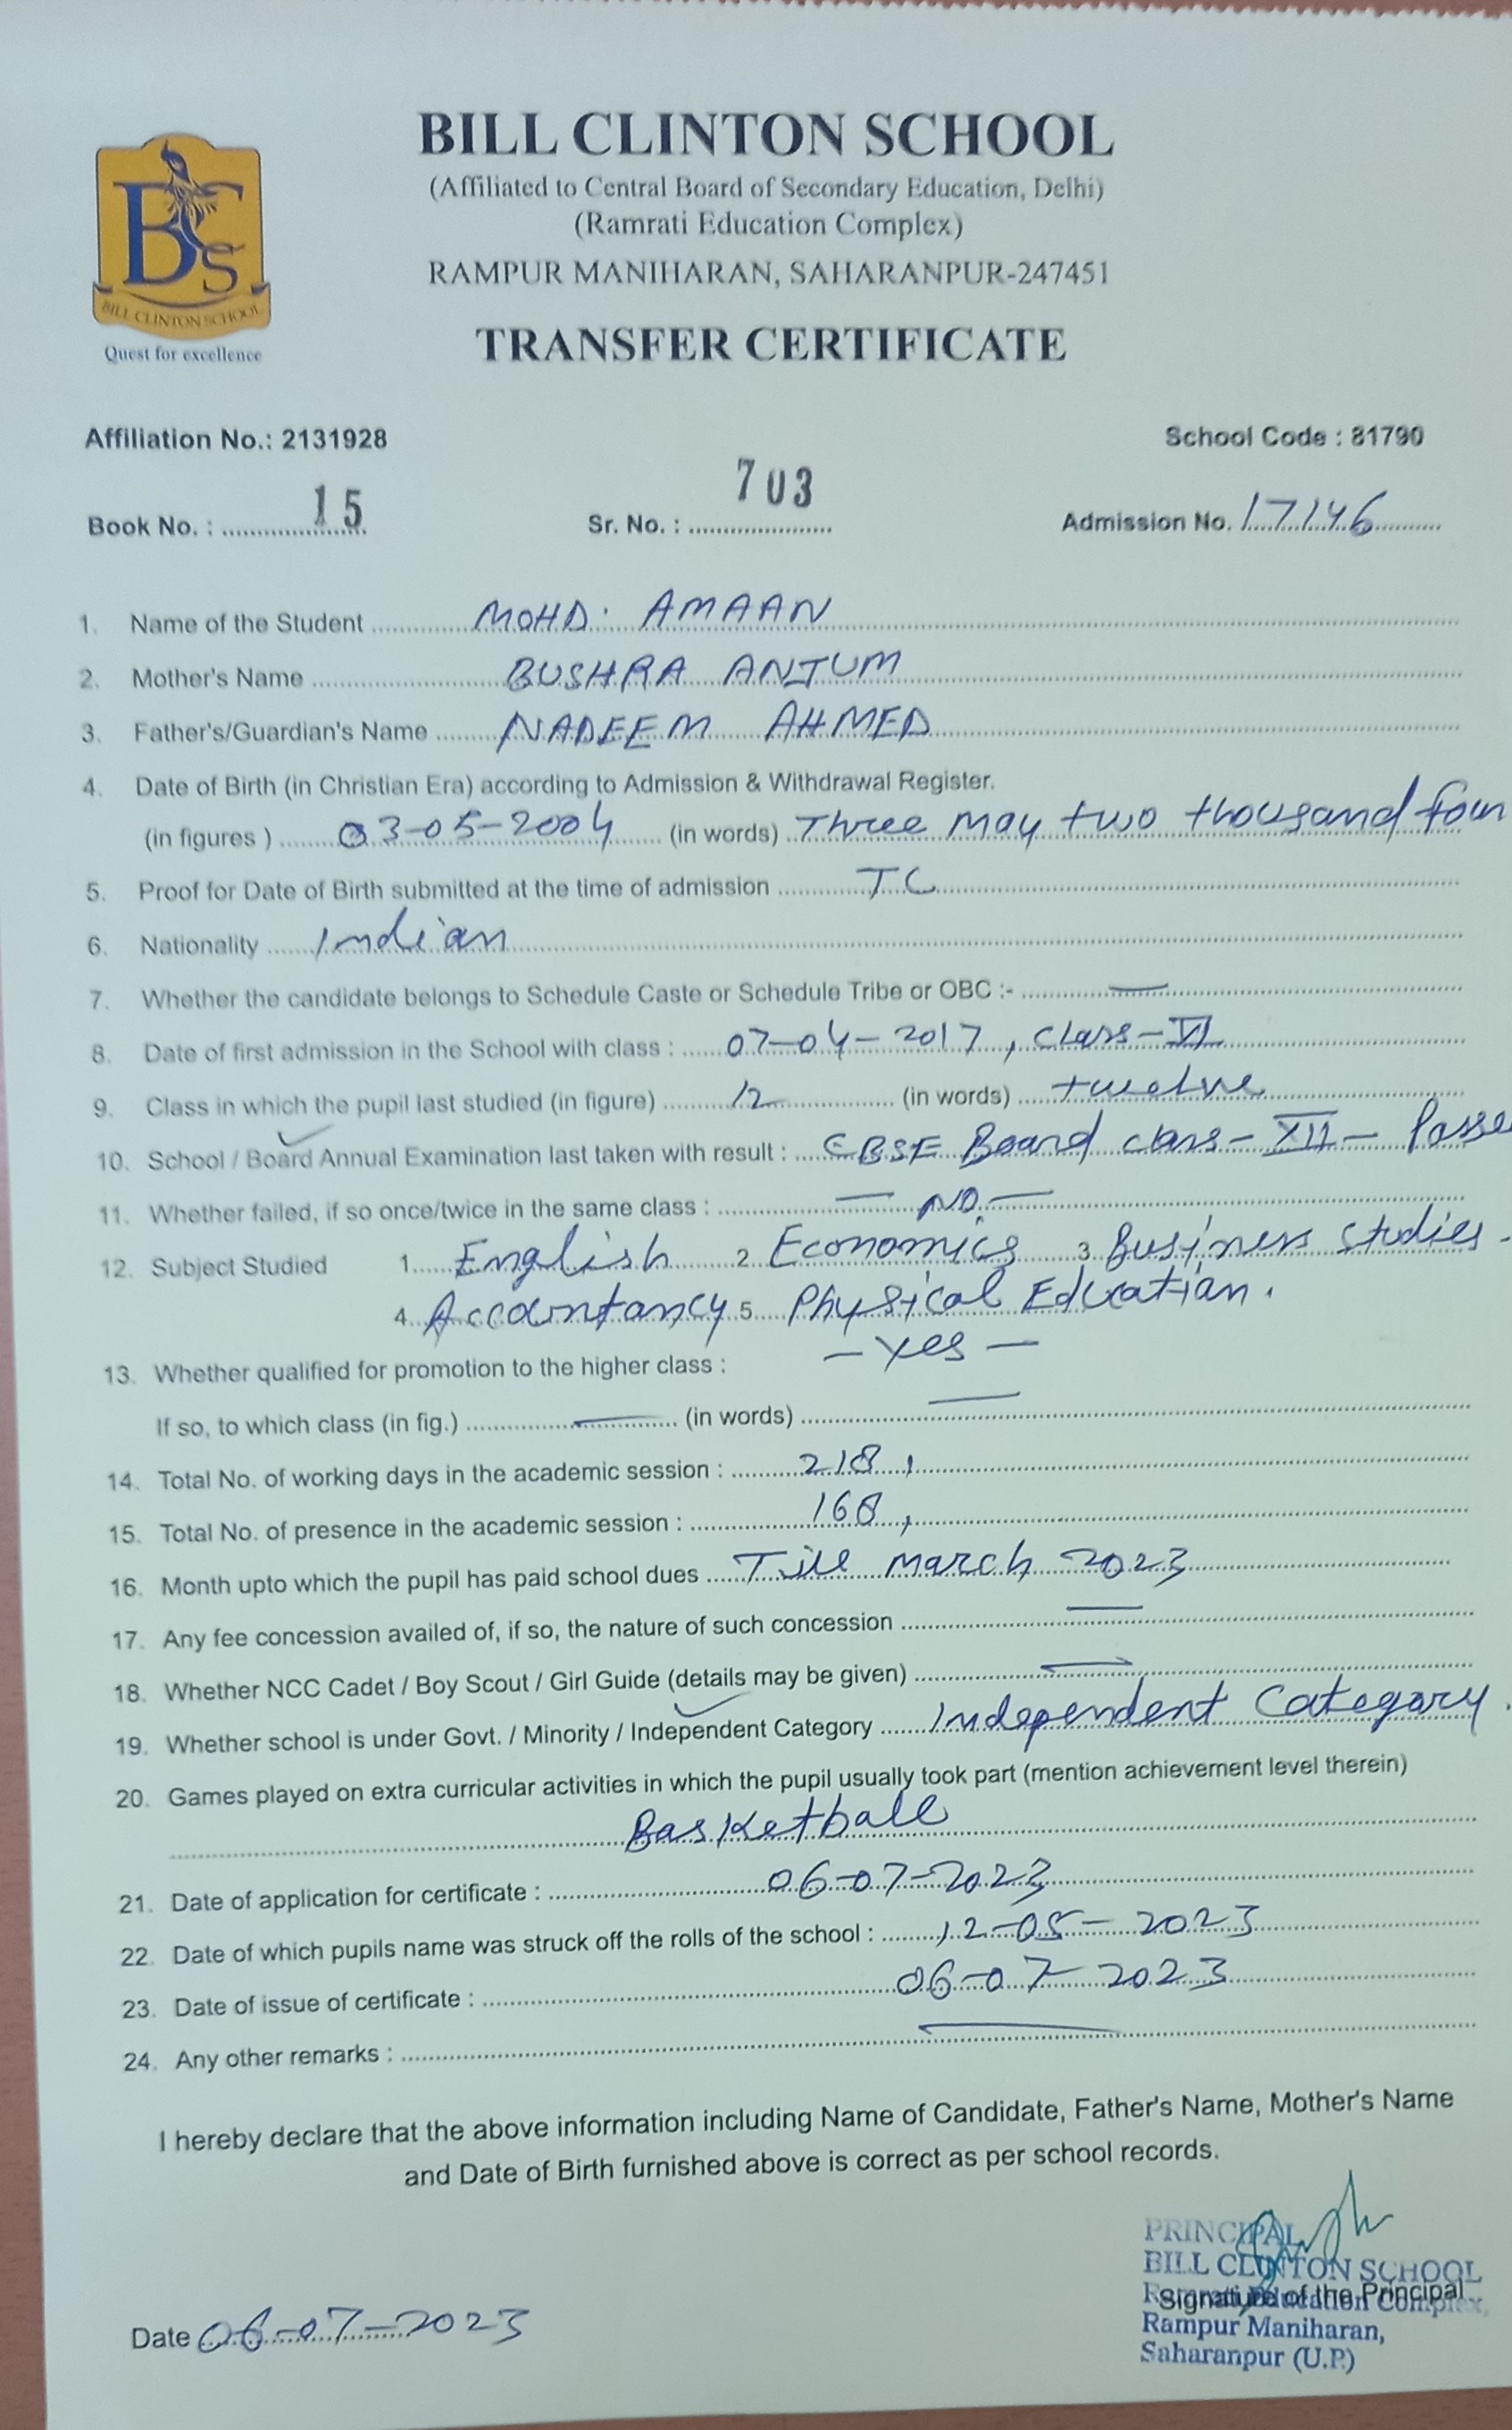 BILL CLINTON SCHOOL
(Affiliated to Central Board of Secondary Education, Delhi)
(Ramrati Education Complex)
RAMPUR MANIHARAN, SAHARANPUR-247451
BCS
BILL CLINTON SCHOOL
Quest for excellence
TRANSFER CERTIFICATE
Affiliation No.: 2131928 School Code : 81790
Book No. : 15 Sr. No. : 703 Admission No. 17146
1. Name of the Student MOHD. AMAAN
2. Mother's Name BUSHRA ANJUM
3. Father's/Guardian's Name NADEEM AHMED
4. Date of Birth (in Christian Era) according to Admission & Withdrawal Register.
(in figures ) 03-05-2004 (in words) Three may two thousand four
5. Proof for Date of Birth submitted at the time of admission TC
6. Nationality Indian
7. Whether the candidate belongs to Schedule Caste or Schedule Tribe or OBC :- —
8. Date of first admission in the School with class : 07-04-2017, Class-VI
9. Class in which the pupil last studied (in figure) 12 (in words) twelve
10. School / Board Annual Examination last taken with result : CBSE Board class-XII- Passe
11. Whether failed, if so once/twice in the same class : — NO —
12. Subject Studied 1. English 2. Economics 3. Business Studies.
4. Accountancy 5. Physical Education.
13. Whether qualified for promotion to the higher class : — Yes —
If so, to which class (in fig.) — (in words) —
14. Total No. of working days in the academic session : 218,
15. Total No. of presence in the academic session : 168,
16. Month upto which the pupil has paid school dues Till March 2023
17. Any fee concession availed of, if so, the nature of such concession —
18. Whether NCC Cadet / Boy Scout / Girl Guide (details may be given) —
19. Whether school is under Govt. / Minority / Independent Category Independent Category.
20. Games played on extra curricular activities in which the pupil usually took part (mention achievement level therein)
Basketball
21. Date of application for certificate : 06-07-2023
22. Date of which pupils name was struck off the rolls of the school : 12-05-2023
23. Date of issue of certificate : 06-07-2023
24. Any other remarks : —
I hereby declare that the above information including Name of Candidate, Father's Name, Mother's Name
and Date of Birth furnished above is correct as per school records.
PRINCIPAL
BILL CLINTON SCHOOL
Ramrati Education Complex,
Signature of the Principal
Rampur Maniharan,
Saharanpur (U.P.)
Date 06-07-2023